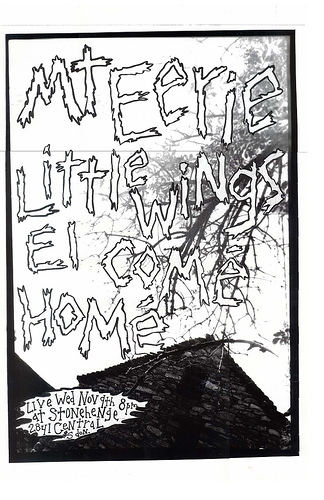 Mt Eerie
Little
Wings
El
Come
Home
Live Wed Nov 9th 8pm
at Stonehenge
2841 Central